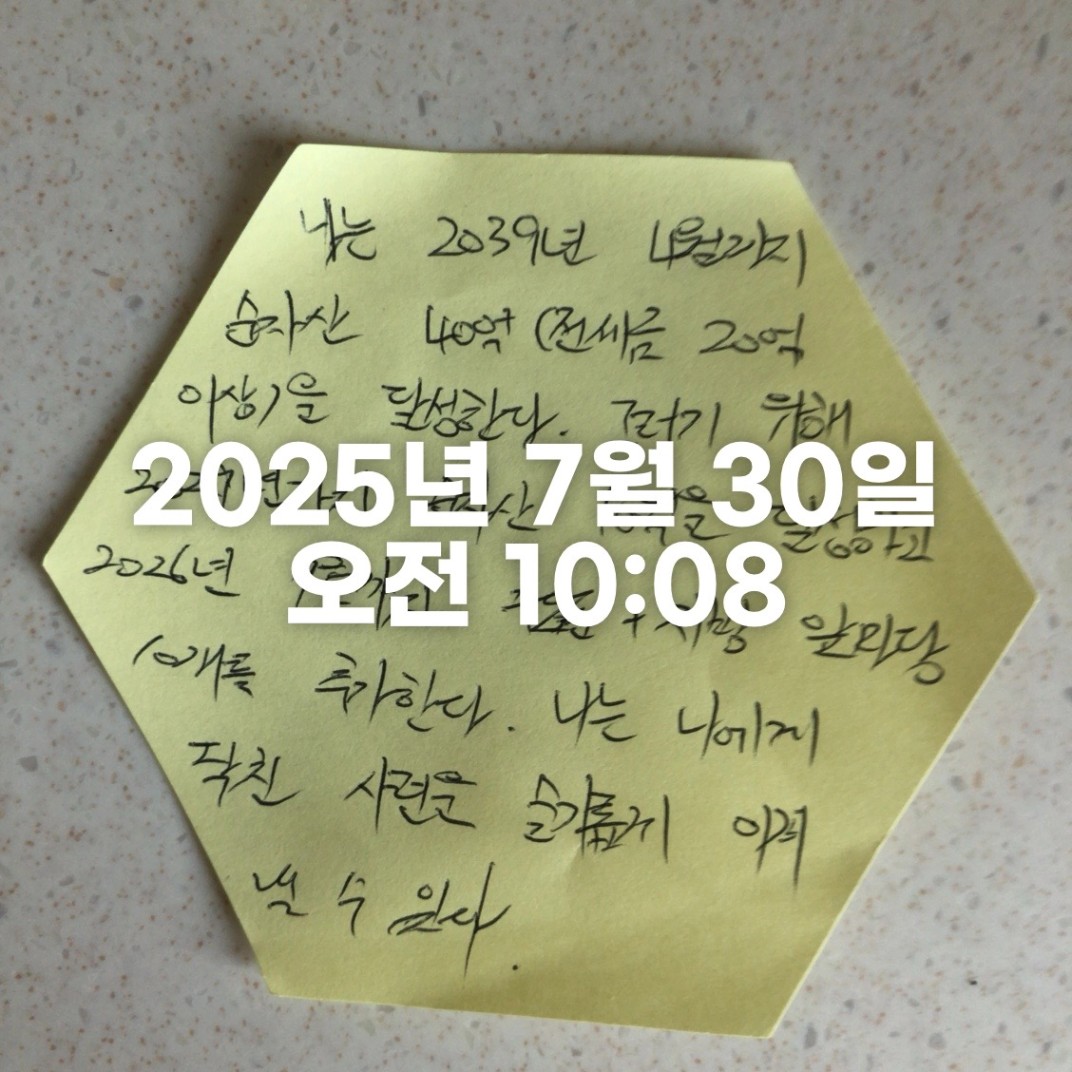 나는 2039년 4월까지
순자산 40억 (전세금 20억
이상)을 달성한다. 그러기 위해
2025년 7월 30일
오전 10:08
달성하고
2026년
10개를 추가한다. 나는 나에게
닥친 시련을 슬기롭게 이겨
낼 수 있다.